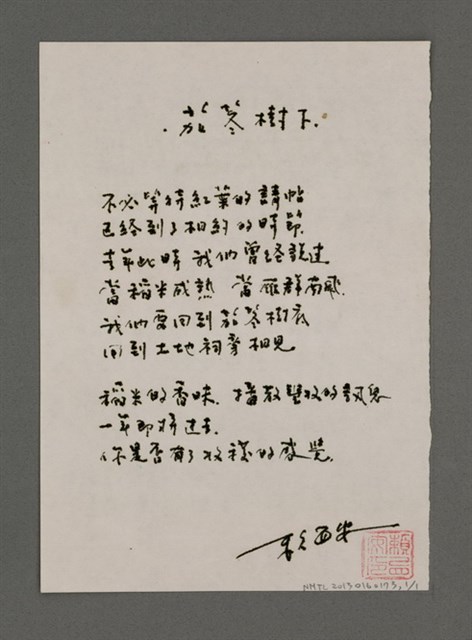 .茄苳樹下.
不必等待紅葉的請帖
已經到了相約的時節.
去年此時 我們曾經説過
當稻米成熟 當雁群南飛.
我們要回到茄苳樹底
回到土地祠旁相見
稻米的香味. 播散豐收的訊息
一年即將過去.
你是否有了收穫的感覺.
賴西安
NMTL 20130160173, 1/1